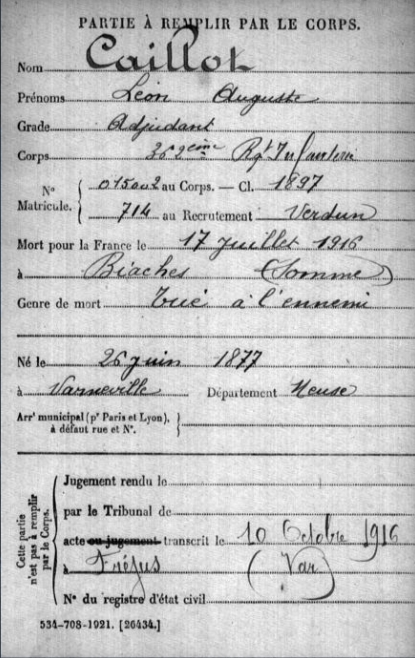 PARTIE À REMPLIR PAR LE CORPS.
Nom Caillot
Prénoms Léon Auguste
Grade Adjudant
Corps 362ème Rgt Infanterie
N° Matricule. { 015002 au Corps. — Cl. 1897
714 au Recrutement Verdun
Mort pour la France le 17 juillet 1916
à Biaches (Somme)
Genre de mort Tué à l'ennemi
Né le 26 juin 1877
à Varneville Département Meuse
Arrt municipal (pr Paris et Lyon), à défaut rue et N°. }
Cette partie n'est pas à remplir par le Corps.
Jugement rendu le
par le Tribunal de
acte ou jugement transcrit le 10 Octobre 1916
à Fréjus (Var)
N° du registre d'état civil
534-708-1921. [26434.]